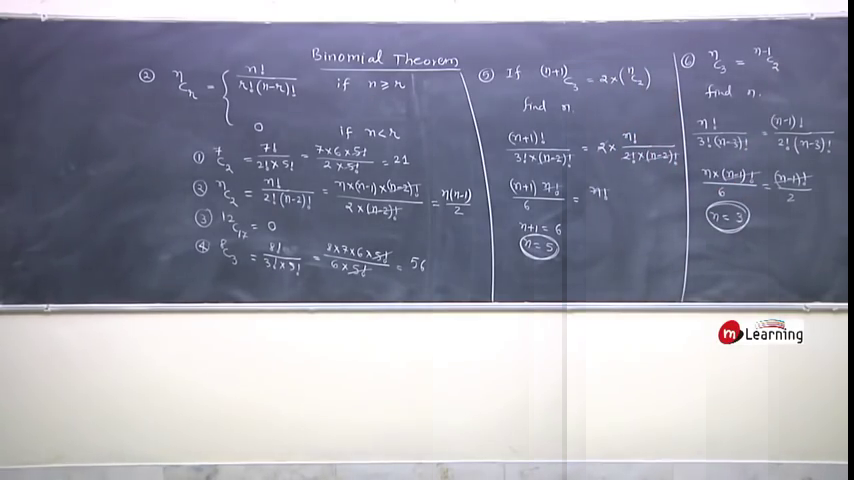 Binomial Theorem
② ⁿCᵣ = { n! / r!(n-r)! if n ≥ r
0 if n < r
① ⁷C₂ = 7! / 2! × 5! = 7 × 6 × 5! / 2 × 5! = 21
② ⁿC₂ = n! / 2! (n-2)! = n × (n-1) × (n-2)! / 2 × (n-2)! = n(n-1) / 2
③ ¹²C₁₇ = 0
④ ⁸C₃ = 8! / 3! × 5! = 8 × 7 × 6 × 5! / 6 × 5! = 56
⑤ If ⁽ⁿ⁺¹⁾C₃ = 2 × (ⁿC₂)
find n.
(n+1)! / 3! × (n-2)! = 2 × n! / 2! × (n-2)!
(n+1) n! / 6 = n!
n+1 = 6
n = 5
⑥ ⁿC₃ = ⁿ⁻¹C₂
find n.
n! / 3! (n-3)! = (n-1)! / 2! (n-3)!
n × (n-1)! / 6 = (n-1)! / 2
n = 3
m Learning